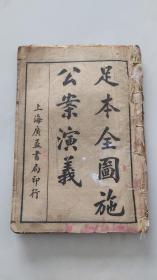 足本全圖施
公案演義
上海廣益書局印行